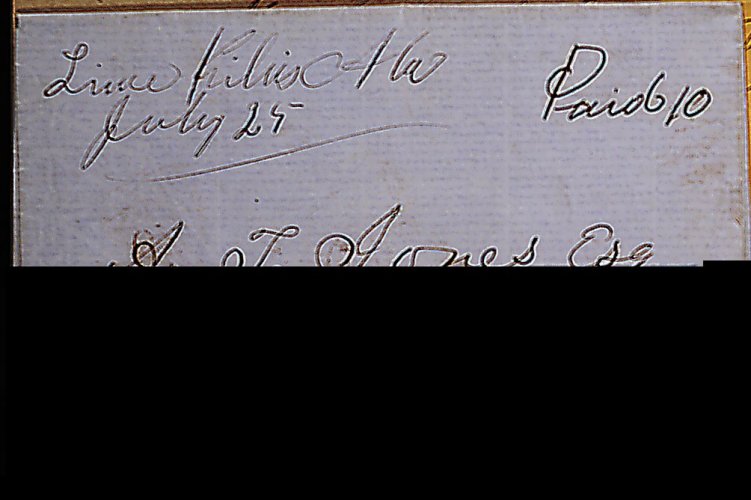 Lime Kilns
Paid 10
July 25
A. T. Jones Esq